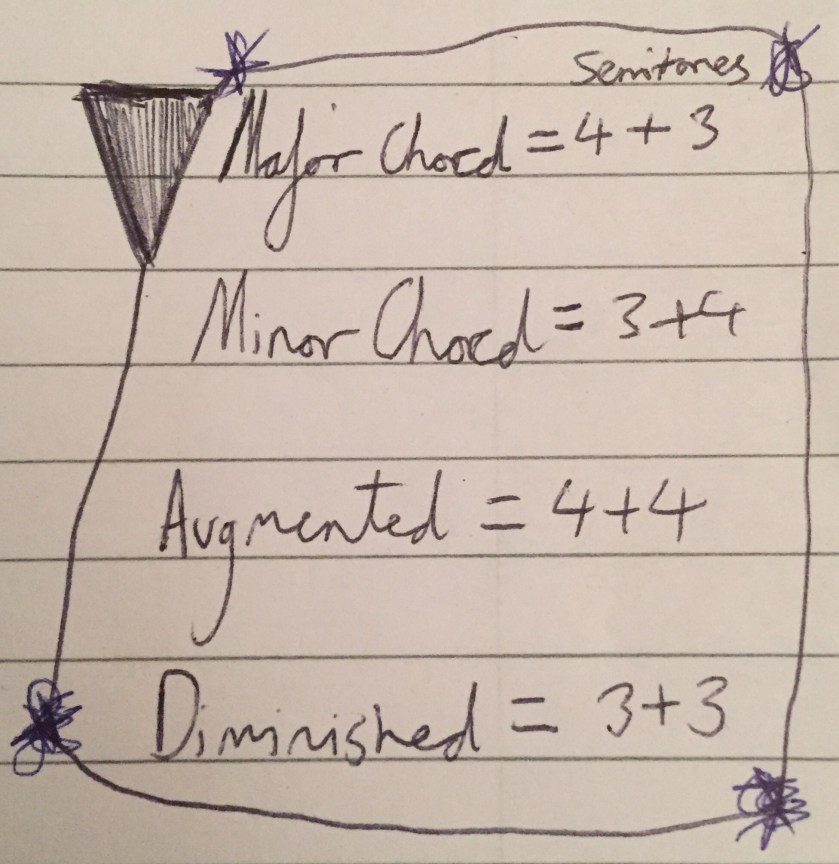 Semitones
Major Chord = 4 + 3
Minor Chord = 3+4
Augmented = 4+4
Diminished = 3+3